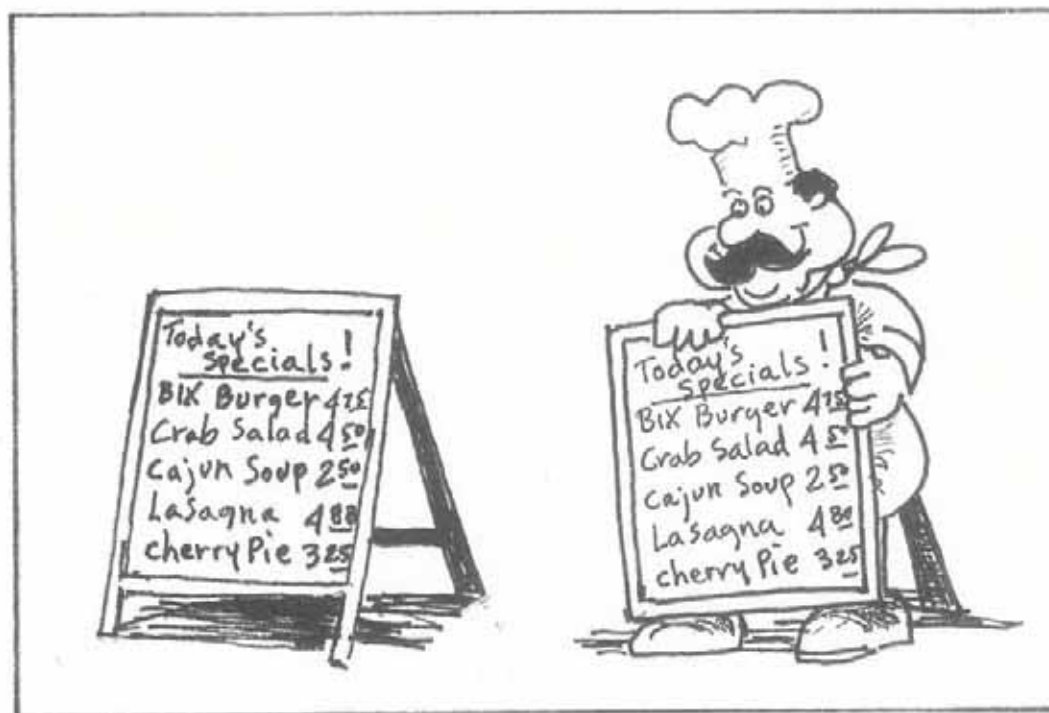 Today's
specials!
BIX Burger 4 75
Crab Salad 4 50
Cajun Soup 2 50
Lasagna 4 80
cherry Pie 3 25
Today's
specials!
BIX Burger 4 75
Crab Salad 4 50
Cajun Soup 2 50
Lasagna 4 80
cherry Pie 3 25